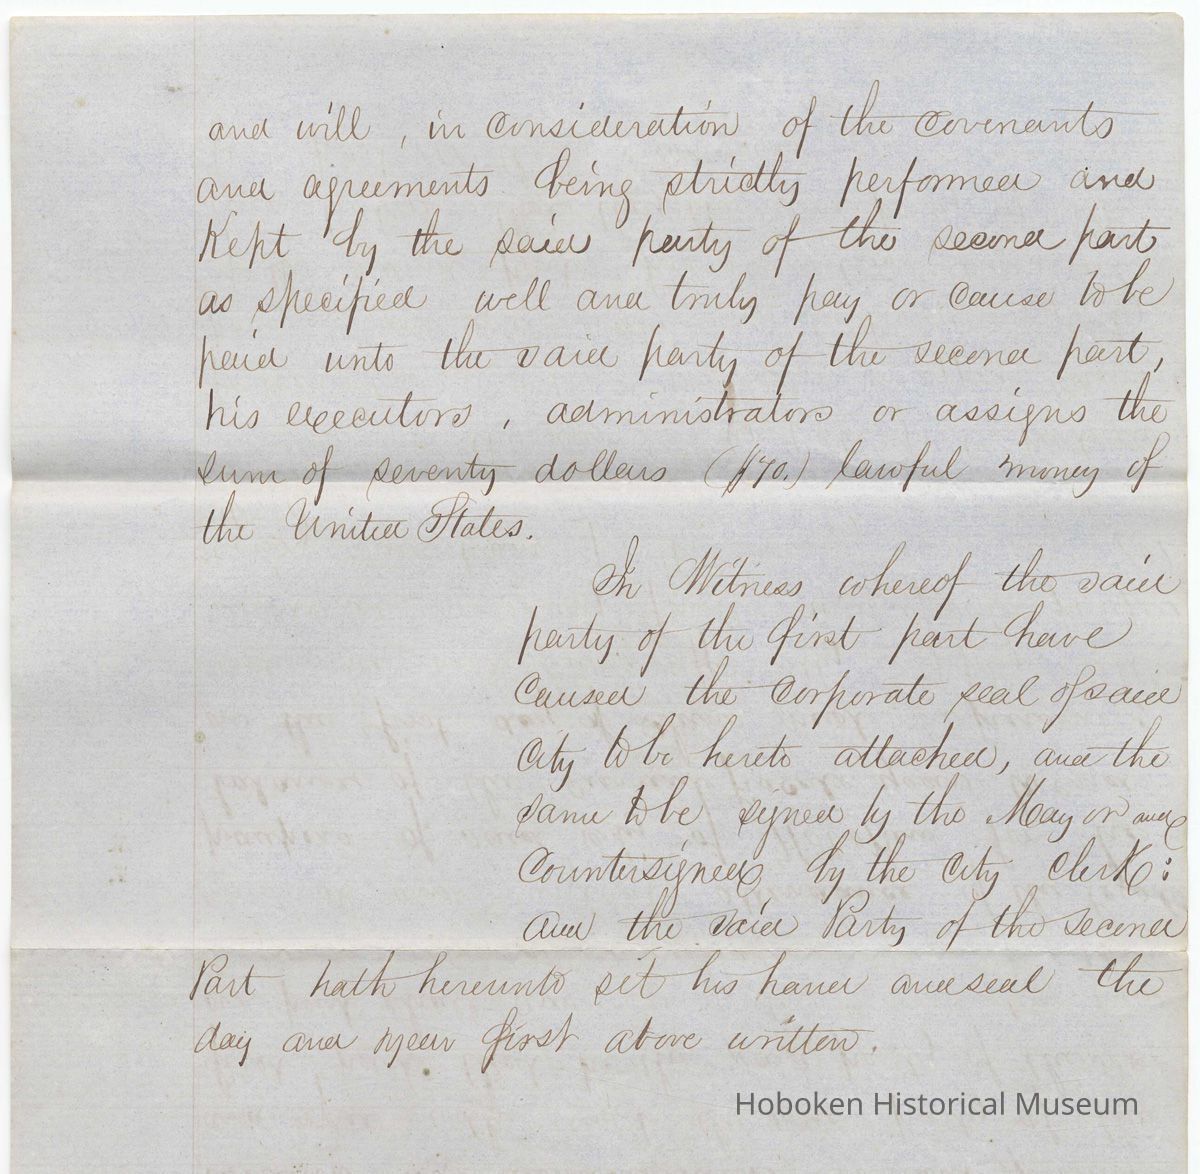 and will , in consideration of the covenants
and agreements being strictly performed and
Kept by the said party of the second part
as specified well and truly pay or cause to be
paid unto the said party of the second part,
his executors , administrators or assigns the
sum of seventy dollars ($70.) lawful money of
the United States.
In Witness whereof the said
party of the first part have
caused the corporate seal of said
city to be hereto attached, and the
same to be signed by the Mayor and
Countersigned by the City Clerk:
and the said Party of the second
Part hath hereunto set his hand and seal the
day and year first above written.
Hoboken Historical Museum